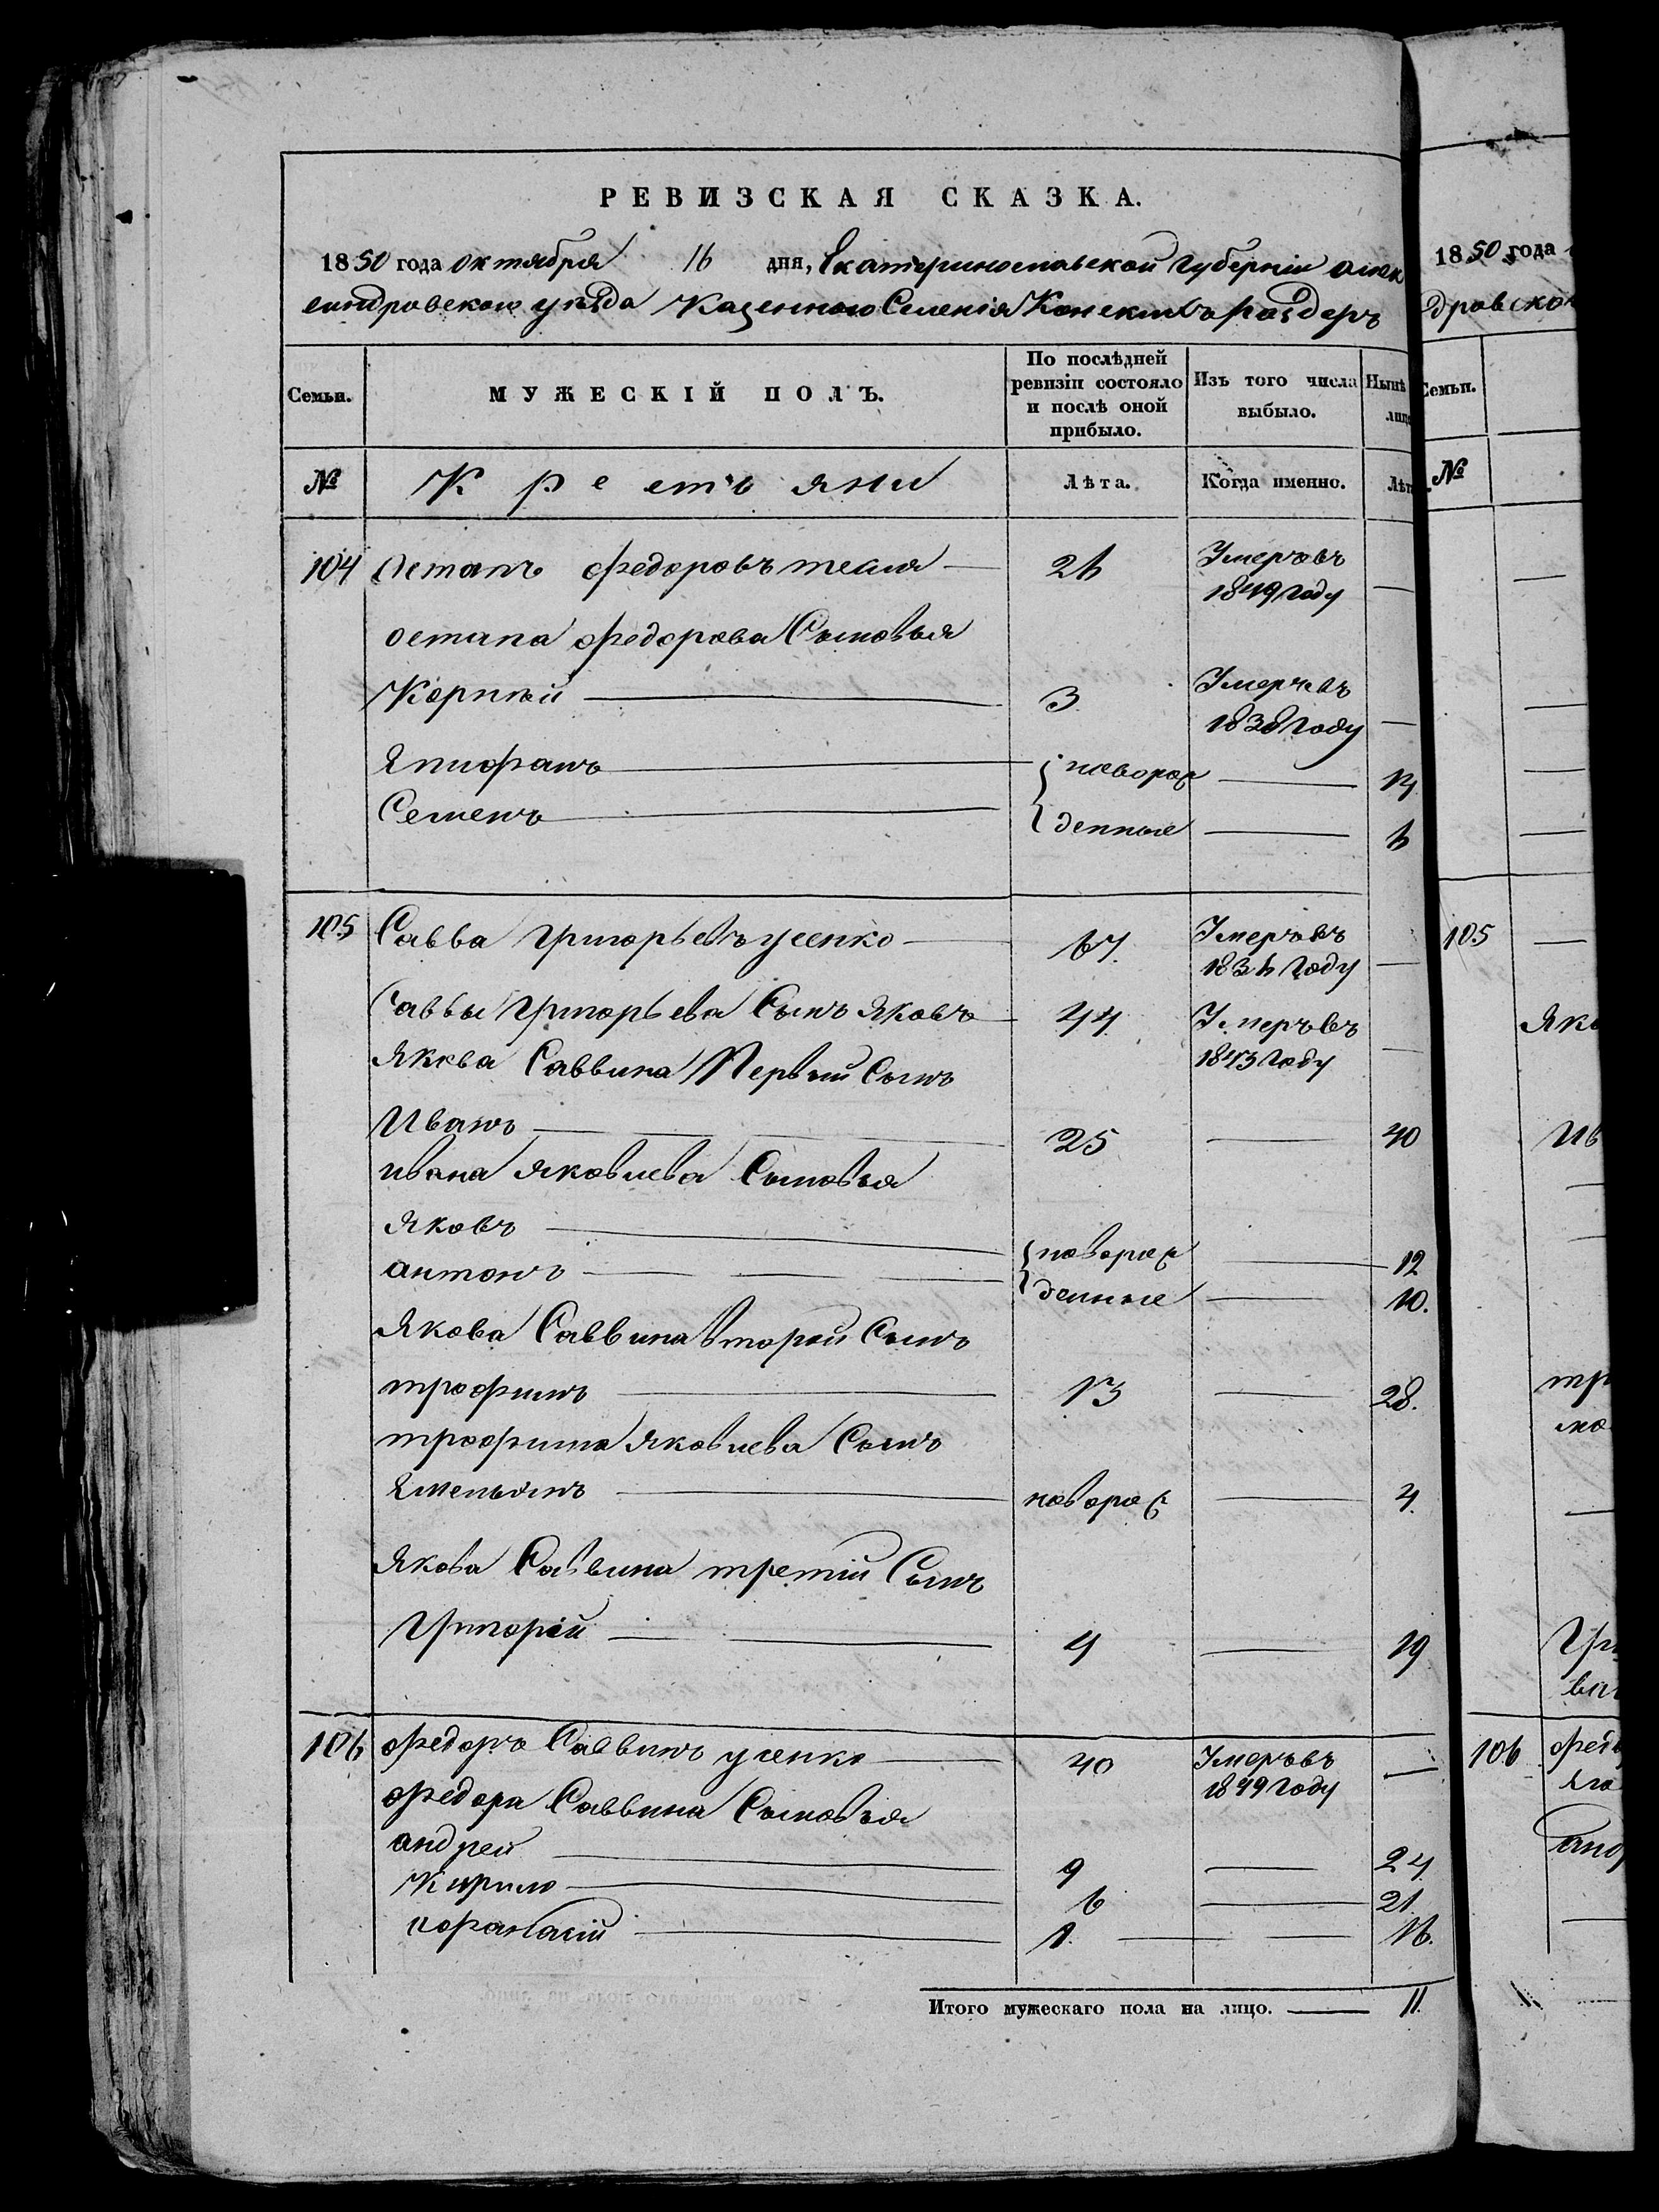 РЕВИЗСКАЯ СКАЗКА.
1850 года октября 16 дня, Екатеринославской губернiи алек
сандровского уѣзда Казенного Селенiя Конскихъ раздоръ
Семьи.
МУЖЕСКІЙ ПОЛЪ.
По послѣдней ревизіи состояло и послѣ оной прибыло.
Изъ того числа выбыло.
Нынѣ лицо
№
Крестьяни
Лѣта.
Когда именно.
Лѣт
104 Остапъ федоровъ тесля 26 Умеръ въ 1849 году
остапа федорова Сыновья
Корнѣй 3 Умеръ въ 1838 году
Япифанъ новорож 14
Семенъ денные 6
105 Савва Григорьевъ усенко 67 Умеръ въ 1836 году
Саввы Григорьева Сынъ Яковъ 44 Умеръ въ 1843 году
Якова Саввина Первый Сынъ
Иванъ 25 40
ивана яковлева Сыновья
Яковъ новорож 12
антонъ денные 10.
Якова Саввина второй Сынъ
трофимъ 13 28.
трофима яковлева Сынъ
Ямельянъ новорож 4.
Якова Саввина третiй Сынъ
Григорiй 4 19
106 федоръ Саввинъ усенко 40 Умеръ въ 1849 году
федора Саввина Сыновья
андрей 9 24
Кирило 6 21
Итого мужескаго пола на лицо. 11.
1 16.
1850 года
дровско
Семьи.
№
105
Яко
Ив
тр
Гри
106 федо
анд